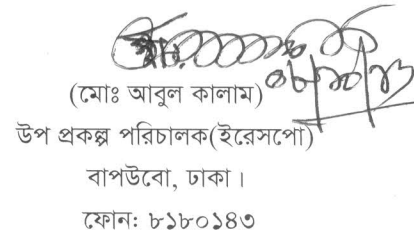 (মোঃ আবুল কালাম)
উপ প্রকল্প পরিচালক(ইরেসপো)
বাপউবো, ঢাকা।
ফোন: ৮১৮০১৪৩